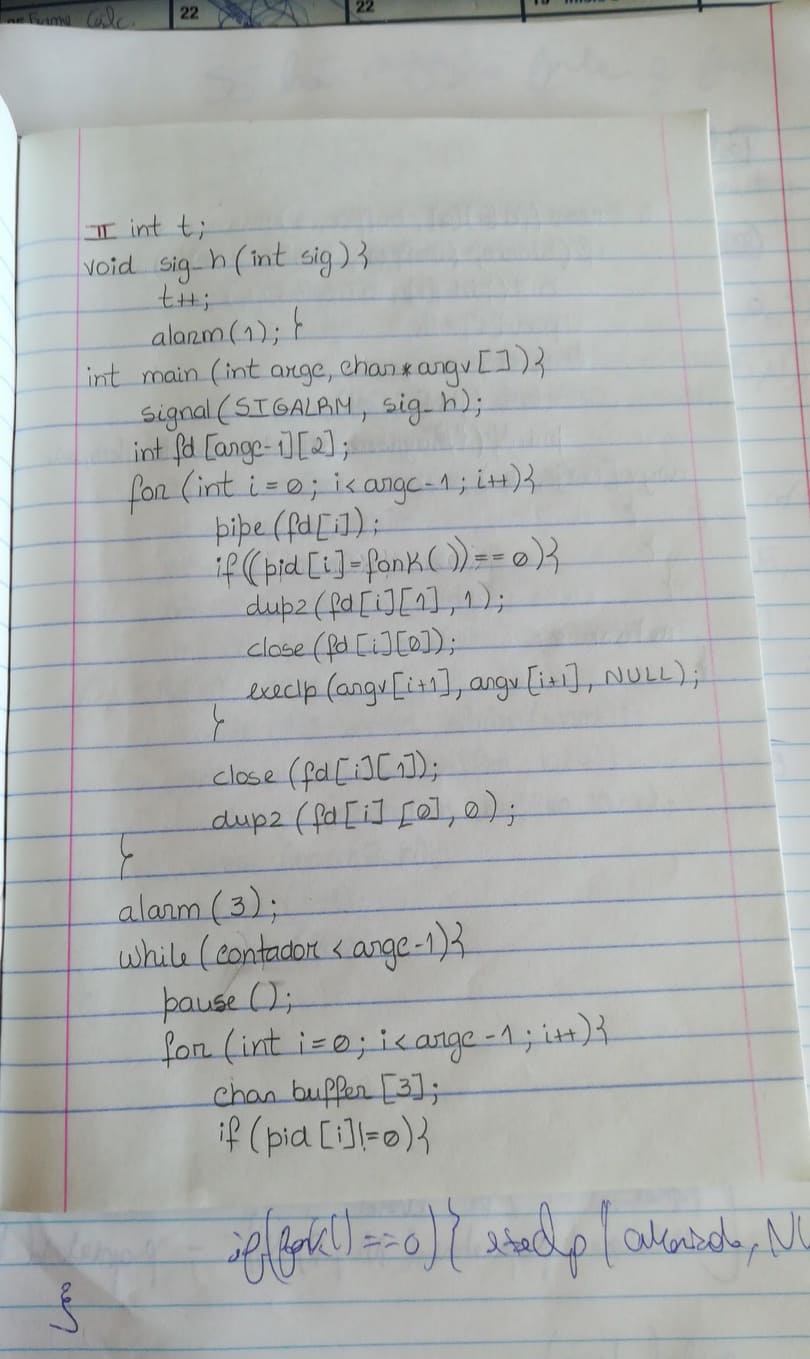 Calc.
22
22
II int t;
void sig_h(int sig){
t++;
alarm(1); }
int main (int argc, char * argv []){
signal(SIGALRM, sig_h);
int fd [argc-1][2];
for (int i = 0; i < argc-1; i++){
pipe (fd[i]);
if((pid [i]=fork())==0){
dup2 (fd[i][1], 1);
close (fd [i][0]);
execlp (argv[i+1], argv [i+1], NULL);
}
close (fd[i][1]);
dup2 (fd[i] [0], 0);
}
alarm (3);
while (contador < argc-1){
pause ();
for (int i=0; i< argc-1; i++){
char buffer [3];
if (pid [i]!=0){
if(fork()==0){
}